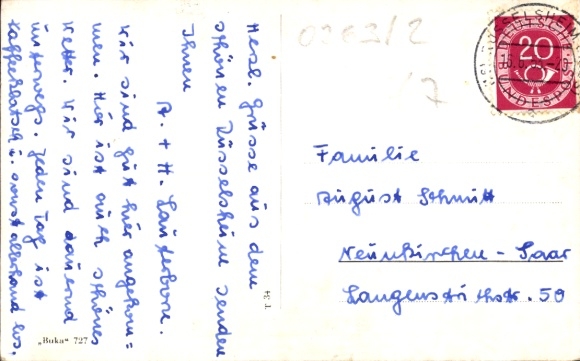 Herzl. Grüsse aus dem
schönen Rüsselsheim senden
Ihnen
A. + H. Lauterborn.
Wir sind gut hier angekom=
men. Hier ist auch schönes
Wetter. Wir sind dauernd
unterwegs. Jeden Tag ist
Kaffeeklatsch u. sonst allerhand los.
„Buka“ 727
T. 34
0263/2
17
20
DEUTSCHE
BUNDESPOST
Familie
August Schmitt
Neunkirchen - Saar
Langenstrichstr. 50